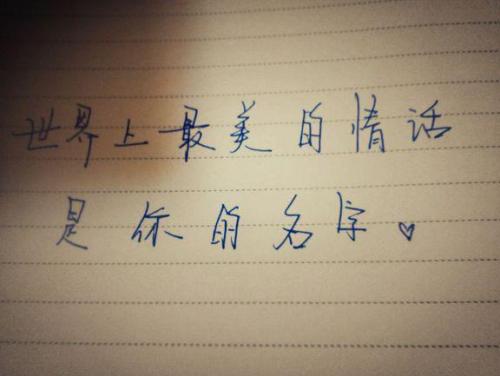 世界上最美的情话
是你的名字♥